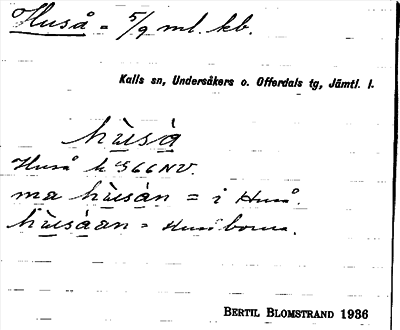 Huså = 5/9 ml. kb.
Kalls sn, Undersåkers o. Offerdals tg, Jämtl. l.
hùsà
Huså h S66NV.
ma hùsàn = i Huså.
hùsàan = Husåborna.
BERTIL BLOMSTRAND 1936